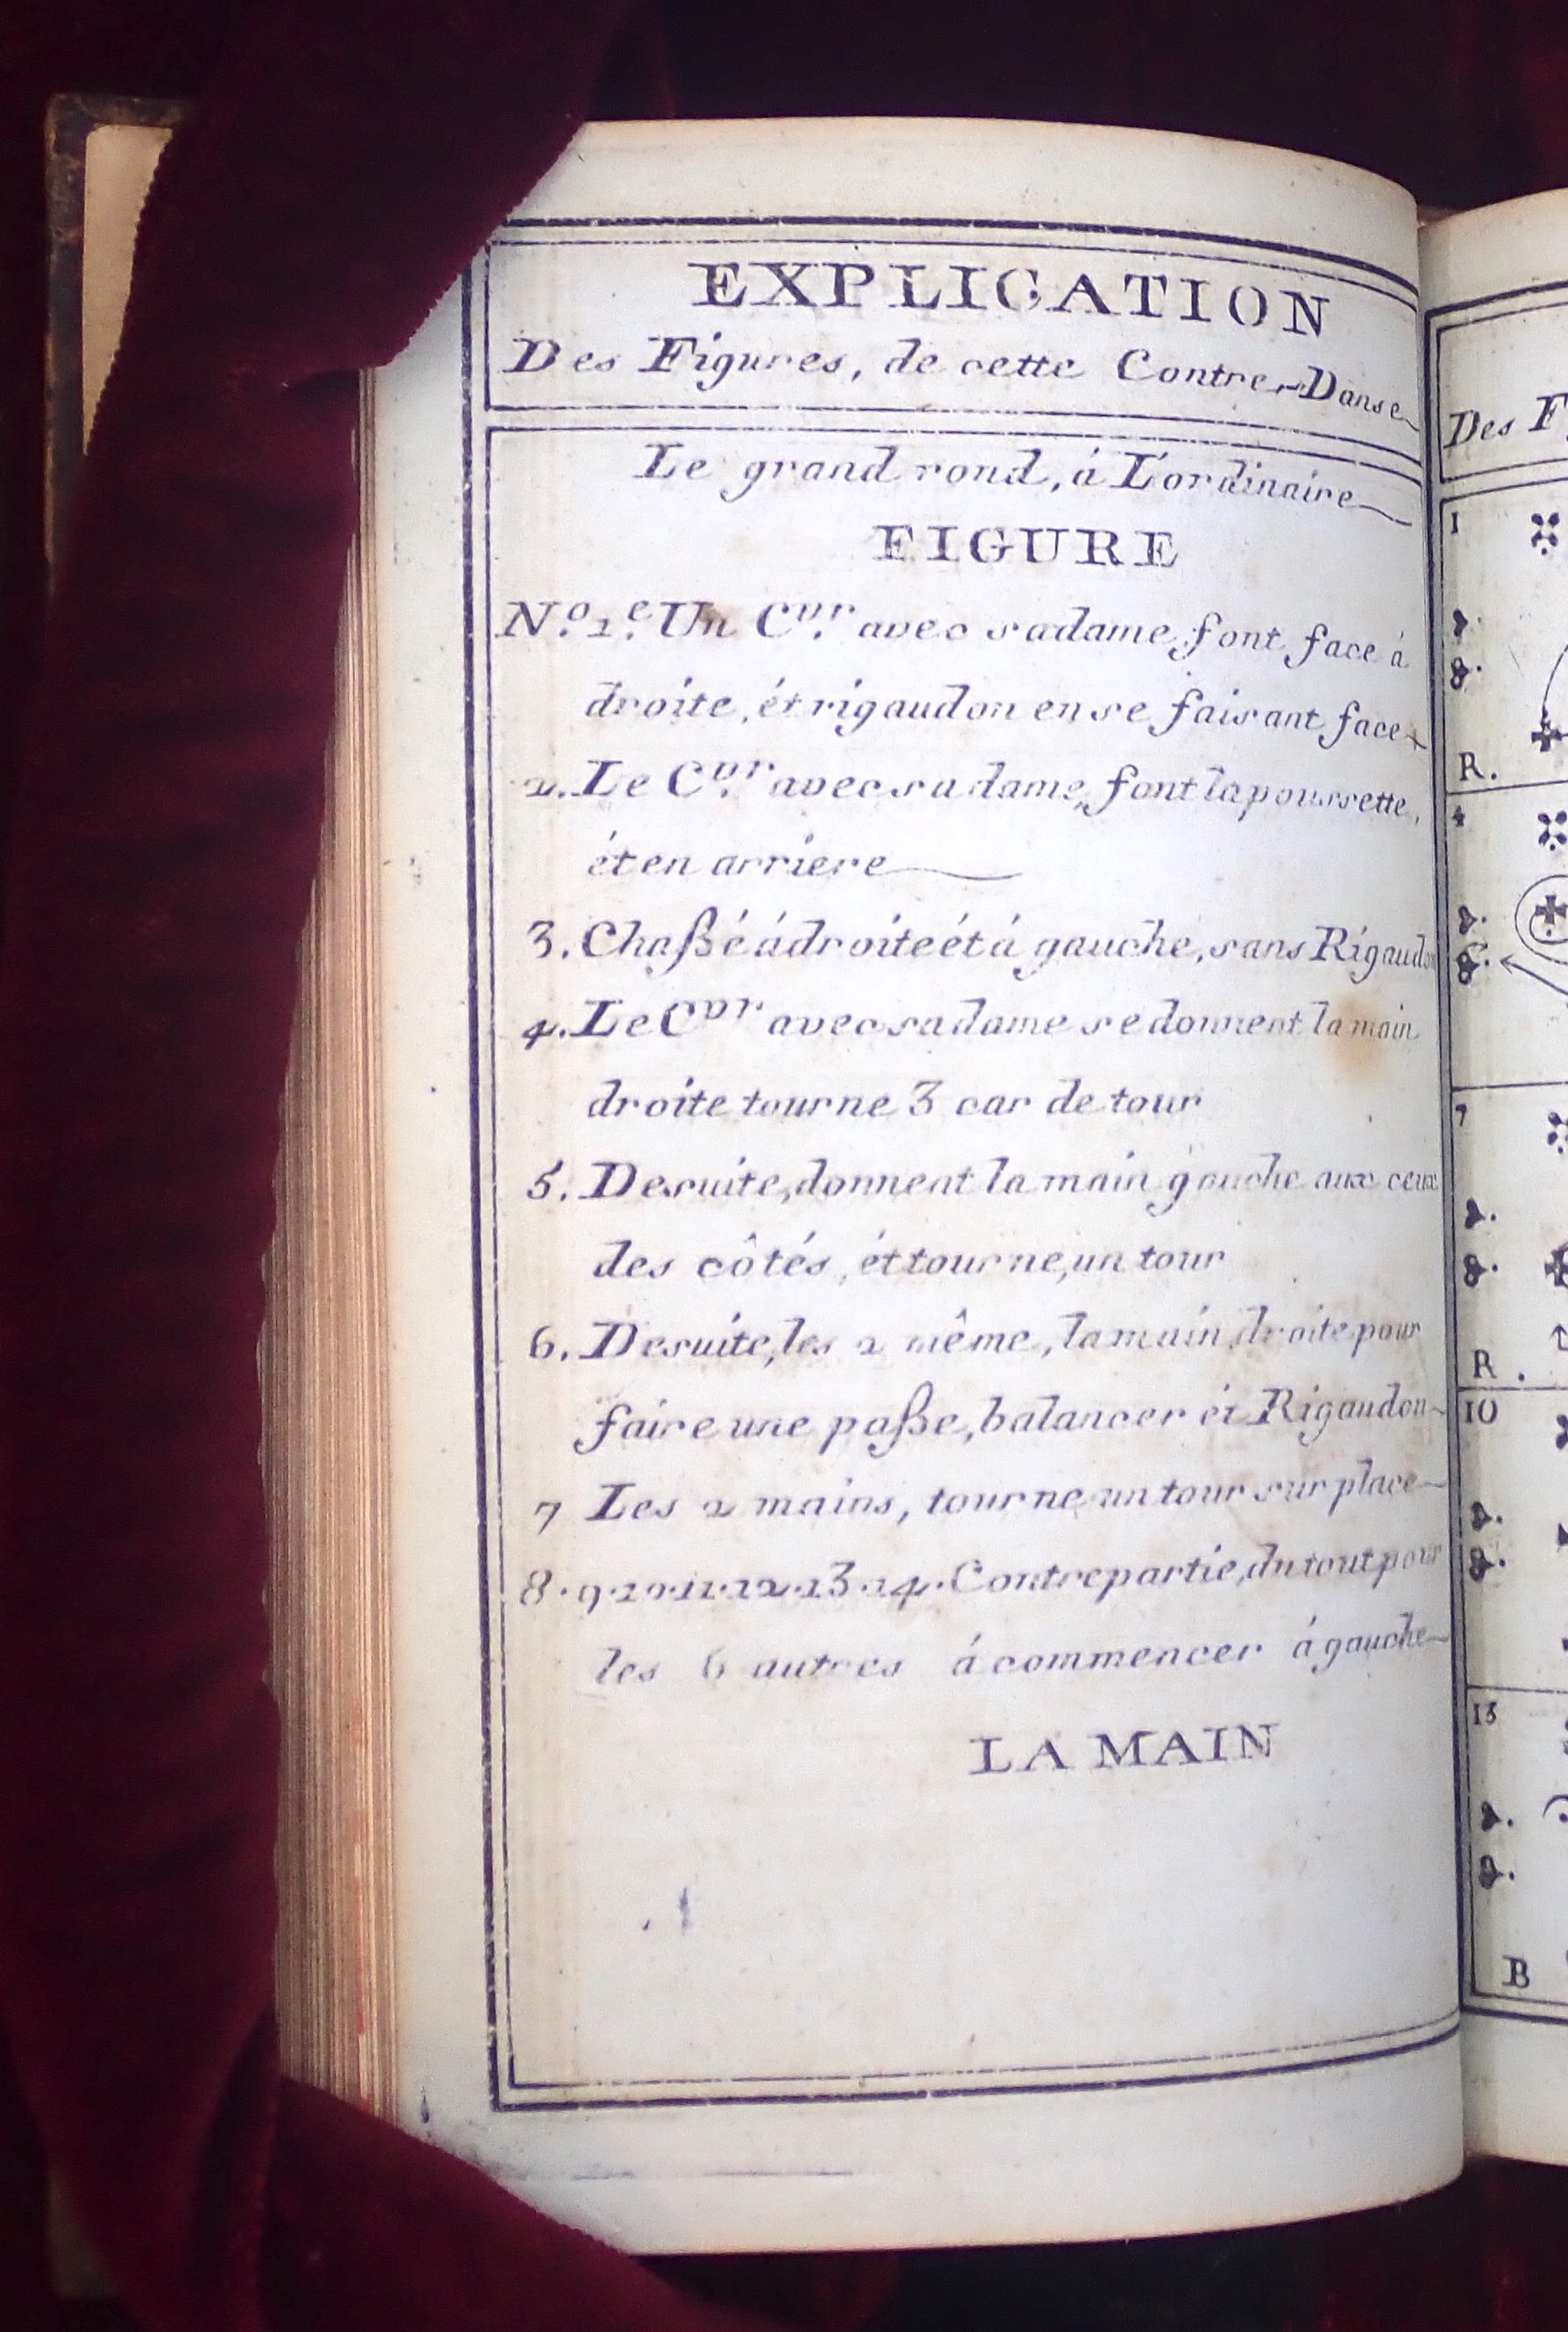 EXPLICATION
Des Figures, de cette Contre-Danse
Le grand rond, á L'ordinaire
FIGURE
N.º 1.e Un C.vr avec sa dame, font face á
droite, ét rigaudon en se faisant face
2. Le C.vr avec sa dame, font la poussette,
ét en arriere
3. Chaßé á droite ét á gauche, sans Rigaudon
4. Le Cvr avec sa dame se donnent la main
droite tourne 3 car de tour
5. Desuite, donnent la main gauche aux ceux
des côtés, ét tourne, un tour
6. Desuite, les 2 même, la main droite pour
faire une paße, balancer ét Rigaudon
7 Les 2 mains, tourne un tour sur place
8. 9. 10. 11. 12. 13. 14. Contrepartie, du tout pour
les 6 autres á commencer á gauche
LA MAIN
Des F
1
R.
4
7
R.
10
13
B